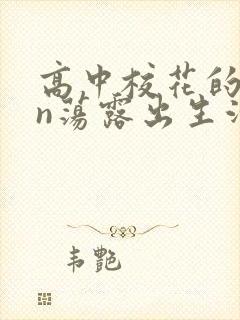 高中校花的
n荡露出生活
韦艷